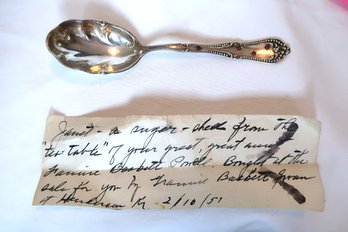 Janet - a sugar - shell from the
"tea table" of your great, great aunt
Fannie Basket Powell. Bought at the
sale for you by Fannie Baskett
at Henderson Ky. 2/10/51